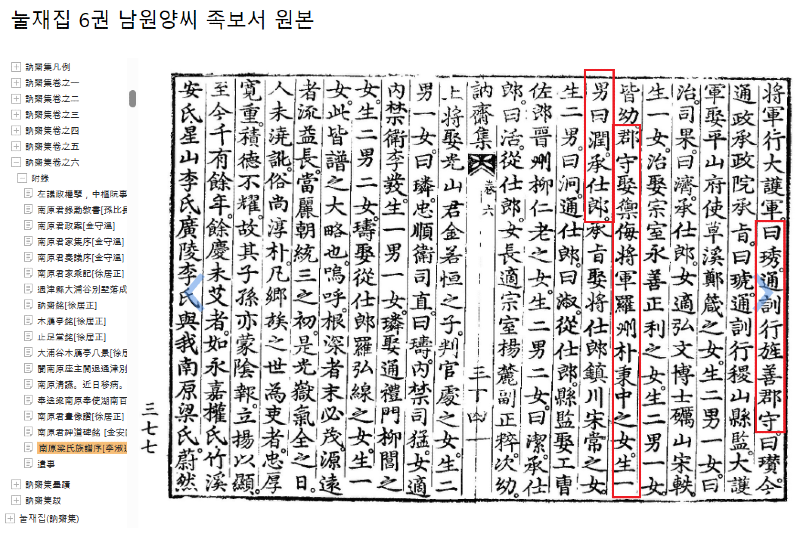 눌재집 6권 남원양씨 족보서 원본
訥齋集凡例
訥齋集卷之一
訥齋集卷之二
訥齋集卷之三
訥齋集卷之四
訥齋集卷之五
訥齋集卷之六
附錄
南原君政案[金守溫]
南原君家集序[金守溫]
南原君奏議序[金守溫]
南原君家乘記[徐居正]
通津縣大浦谷別墅落成
訥齋銘[徐居正]
木鴈亭銘[徐居正]
止足堂銘[徐居正]
大浦谷木鴈亭八景[徐居
南原君畫像讚[徐居正]
南原君神道碑銘 [金安
南原梁氏族譜序[李淑
遺事
訥齋集跋
눌재집(訥齋集)
三七七
將軍行大護軍。曰琇。通訓行旌善郡守。曰瓚。今
通政承政院承旨。曰琥。通訓行稷山縣監。大護
軍娶平山府使草溪鄭箴之女。生二男一女。曰
治。司果。曰濟。承仕郎。女適弘文博士礪山宋軼。
生一女。治娶宗室永善正利之女。生二男一女。
皆幼。郡守娶禦侮將軍羅州朴秉中之女。生一
男曰潤。承仕郎。承旨娶將仕郎鎮川宋常之女。
生二男。曰泂。通仕郎。曰淑。從仕郎。縣監娶工曹
佐郎晉州柳仁老之女。生二男二女。曰潔。承仕
郎。曰活。從仕郎。女長適宗室揚麓副正。次幼。
訥齋集 卷六 三十四
上將娶光山君金若恒之子判官處之女。生二
男一女。曰璘。忠順衛司直。曰璹。內禁司猛。女適
內禁衛李發。生一男一女。璘娶通禮門柳閻之
女。生二男二女。璹娶從仕郎羅弘之女。生一
女。此皆譜之大略也。嗚呼。根深者末必茂。源遠
者流益長。當麗朝統三之初。是光嶽氣全之日。
人未澆訛。俗尚淳朴。凡鄉族之世爲吏者。忠厚
寬重。積德不耀。故其子孫亦蒙陰報。立揚以顯。
至今千有餘年。餘慶未艾者。如永嘉權氏。竹溪
安氏。星山李氏。廣陵李氏。與我南原梁氏。蔚然